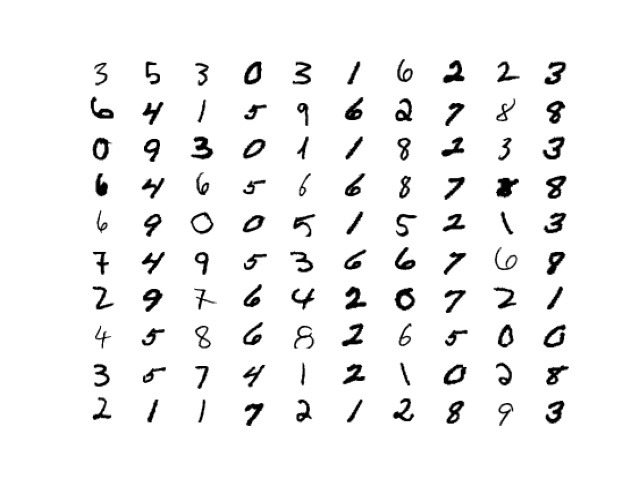 3 5 3 0 3 1 6 2 2 3
6 4 1 5 9 6 2 7 8 8
0 9 3 0 1 1 8 2 3 3
6 4 6 5 6 6 8 7 8 8
6 9 0 0 5 1 5 2 1 3
7 4 9 5 3 6 6 7 6 8
2 9 7 6 4 2 0 7 2 1
4 5 8 6 8 2 6 5 0 0
3 5 7 4 1 2 1 0 2 8
2 1 1 7 2 1 2 8 9 3